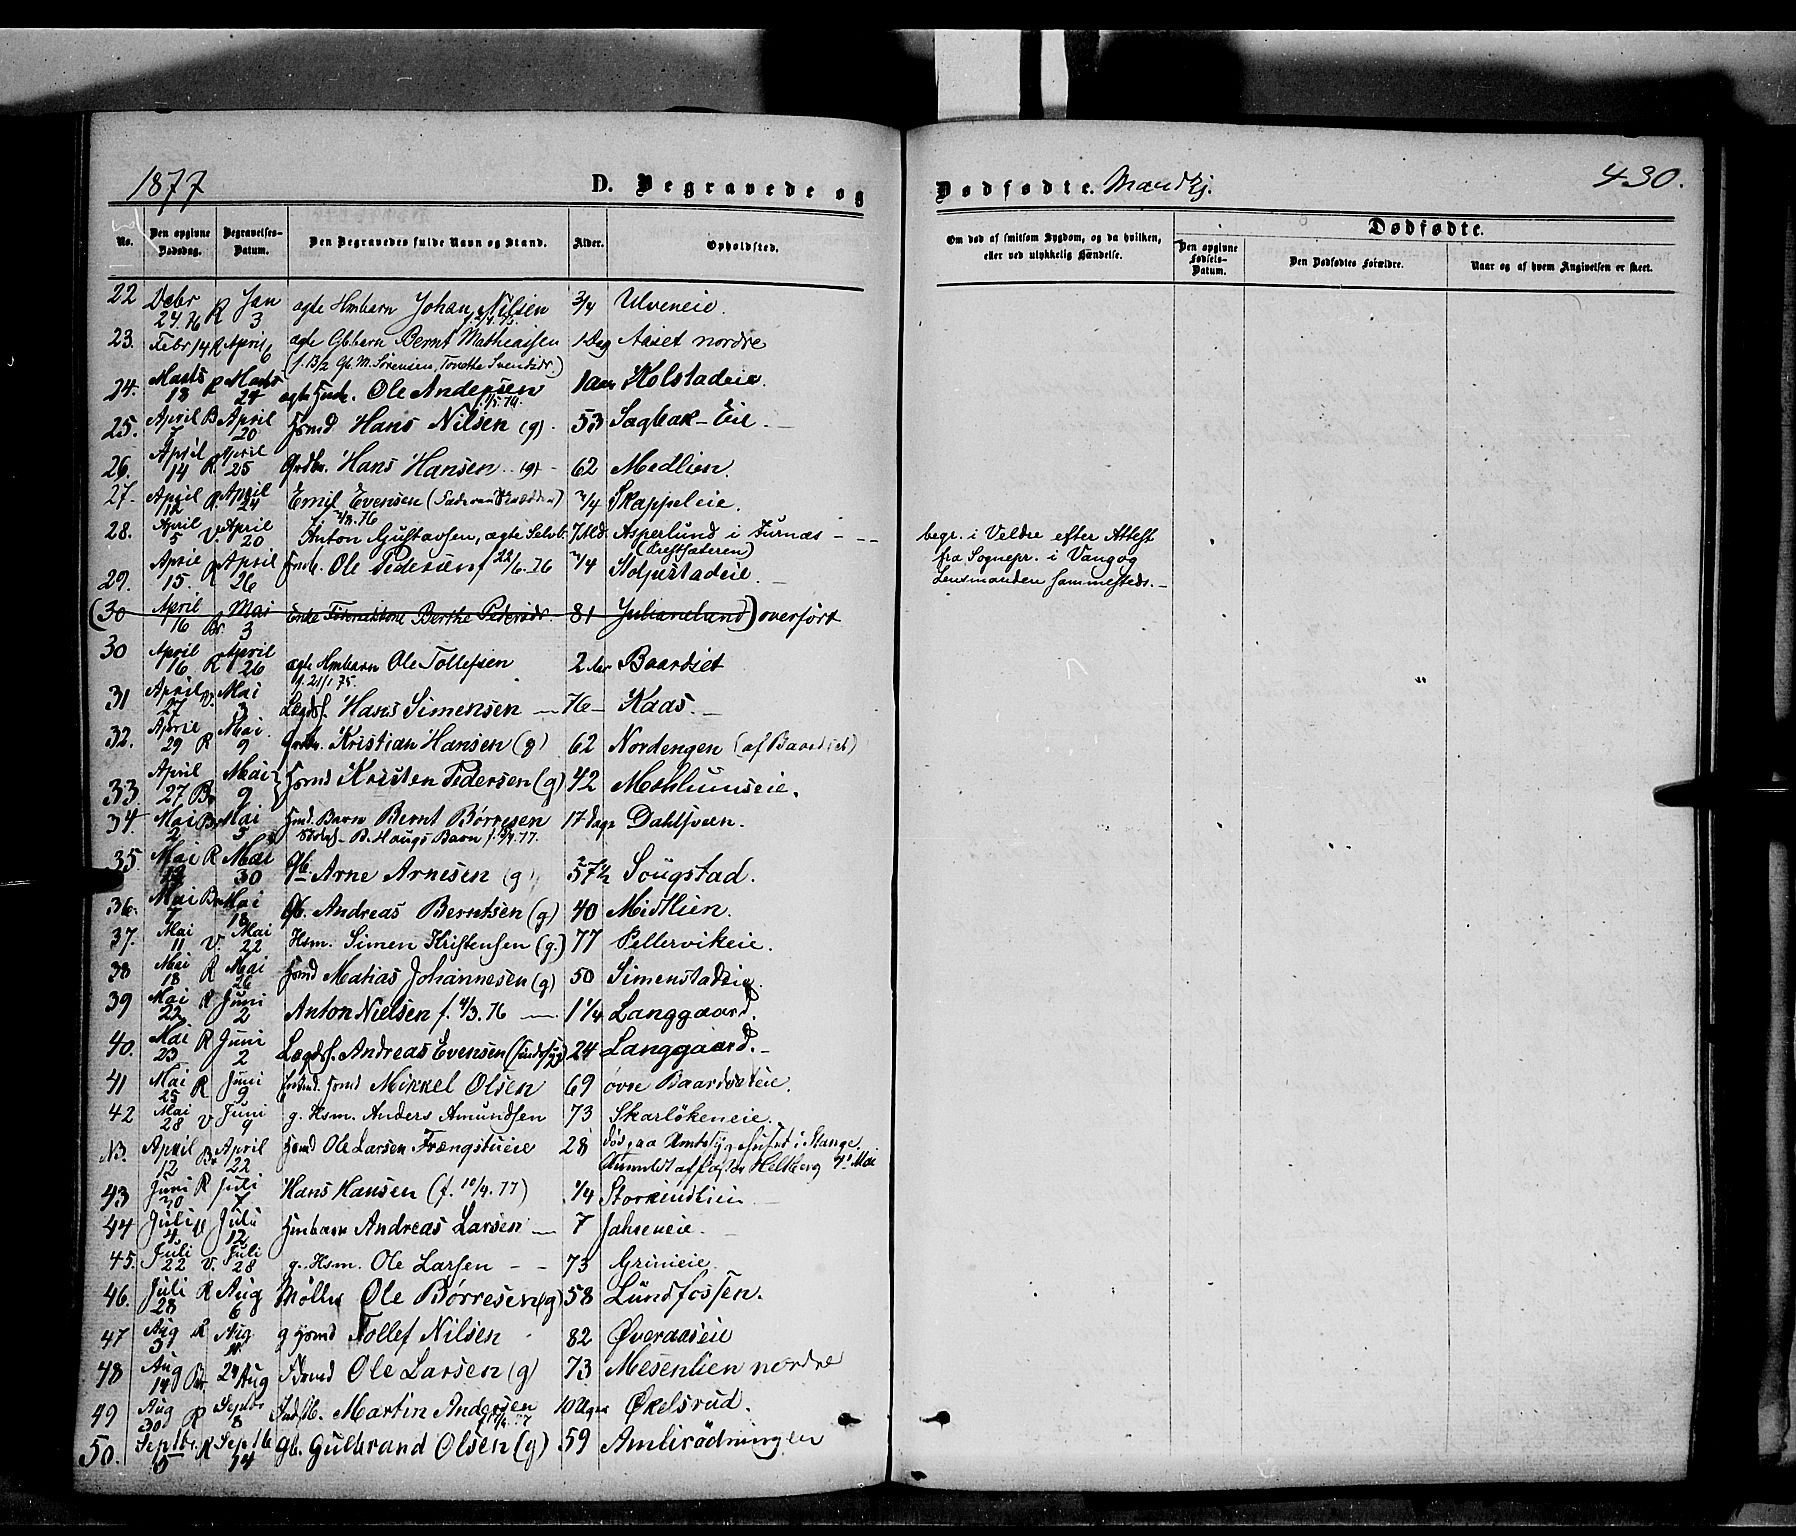 1877 D. Begravede og Dødfødte. Mandkj. 430.
No. Den opgivne Dødsdag. Begravelses-Datum. Den Begravedes fulde Navn og Stand. Alder. Opholdsted.
Om død af smitsom Sygdom, og da hvilken, eller ved ulykkelig Hændelse.
Dødfødte.
Den opgivne Fødsels-Datum. Den Dødfødtes Forældre. Naar og af hvem Angivelsen er skeet.
22 Decbr 24. 76 R Jan 3 ægte Hmbarn Johan Nilsen 3/4 Ulveneie.
23. Febr 14 R April 6 ægte Gbbarn Bernt Mathiassen 1 Dag Aaset nordre
(f. 13/2 Gb. M. Sørensen, Tonette Svendsdr.)
24. Marts 18 R Marts 24 Ole Andersen 1 Aar Kolstadeie.
25. April 7 B April 20 Hsmd Hans Nilsen (g) - 53 Sagbak-Eie -
26. April 14 R April 25 Grdbr. Hans Hansen (g) - 62 Medlien.
27. April 12 R. April 24 Emil Evensen 3/4 Skappeleie.
28. April 5 V. April 20 Anton Gustavsen, ægte Selvb. 7 Md. Asperlund i Furnæs - - -
begr. i Veldre efter Attest
fra Sognepr. i Vang og
Lensmanden sammesteds. -
29. April 15. R April 26 Ole Pedersen f 22/6. 76 3/4 Stolpestadeie. -
(30 April 16 Br. Mai 3 Enke Berthe Pedersdr. 81 Julianelund) overført
30 April 16 R April 26 ægte Hmbarn Ole Tollefsen 2 Aar Baardset
f. 21/1 75.
31 April 27 V. Mai 3 Lægdsl. Hans Simensen - 76 - Kaas. -
32. April 29 R Mai 9 Grdbr. Kristian Hansen (g) 62 Nordengen (af Baardset)
33. April 27 Br Mai 9 Hsmd Kristen Pedersen (g) 42 Mohlumseie.
34. Mai 2 Br Mai 5 Hsmd. Barn Bernt Børresen 17 Dage Dahlsveen.
B. Haugs Barn
35 Mai R Mai 30 Gb. Arne Arnesen (g) 57 1/2 Sougstad.
36. Mai 7 Br Mai 18 Gb. Andreas Berntsen (g) 40 Midtlien.
37. Mai 11 V. Mai 22 Hsm. Simen Kristensen (g.) 77 Pellervikeie.
38 Mai 18 R Mai 26 Hsmd Matias Johannesen (g) 50 Simenstadeie.
39 Mai 22 R Juni 2 Anton Nielsen f. 4/3. 76 - 1 1/4 Langgaard.
40. Mai 23 R Juni 2 Lægdsl. Andreas Evensen (sindssyg) 24 Langgaard. -
41 Mai 25 R Juni 9 Hsmd Mikkel Olsen 69 øvre Baardseteie.
42 Mai 28 V Juni 9 g. Hsm. Anders Amundsen 73 Skarløkeneie.
NB. April 12 Br April 22 Hsmd Ole Larsen Frængstueie 28 død paa Amtssygehuset i Stange.
Anmeldt af Pastor Heltberg 4' Mai
43 Juni 30 R Juli 7 Hans Hansen (f. 10/4. 77) 1/4 Storkindlien
44 Juli 4 V Juli 12 Hmbarn Andreas Larsen - 7 Jahseneie. -
45. Juli 22 V. Juli 28 g. Hsm. Ole Larsen - - 73 Grimeie.
46. Juli 28 R Aug 6 Møller Ole Børresen (g) 58 Lundfossen.
47 Aug 3 R Aug 11 g Hsmd Tollef Nilsen 82 Øveraaseie
48 Aug 14 Br 24 Aug Hsmd Ole Larsen (g) 73 Mesenlien nordre
49 Aug 30 R Septbr 8 Martin Andersen 10 Uger Økelsrud.
50. Septbr. R Septb 14 Gb. Gulbrand Olsen (g) 59 Amlirødningen